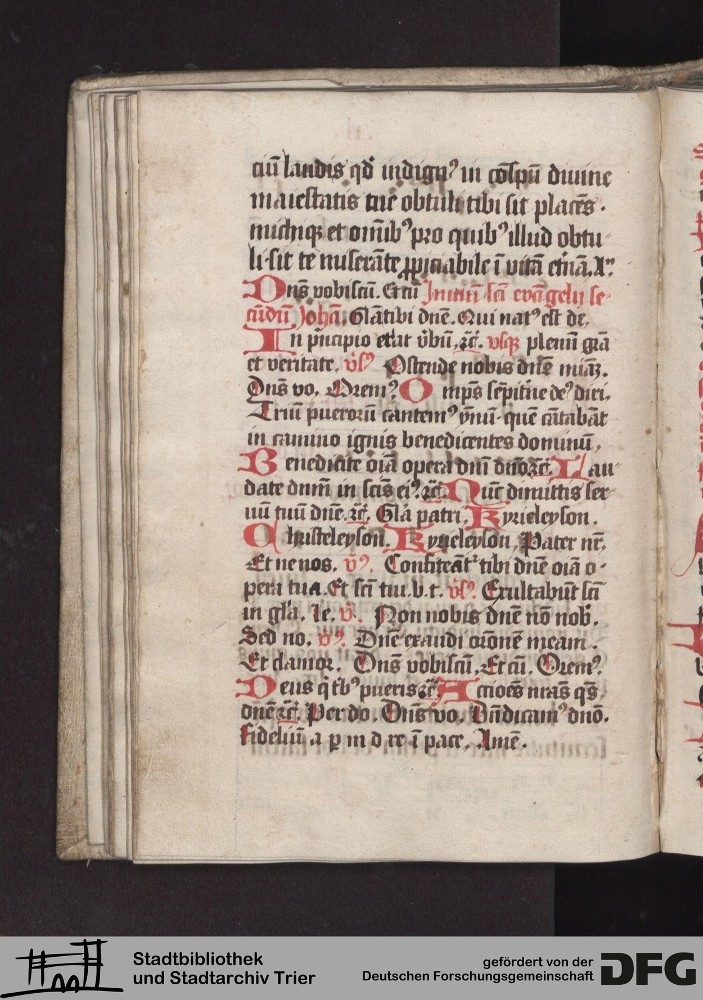 ciu̅ laudis qd̛ indignꝰ in co̅spu̅ diuine
maiestatis tue obtuli tibi sit place̅s ·
michiqꝫ et om̅ibꝰ pro quibꝰ illud obtu
li · sit te misera̅te ꝓpiciabile i̅ vita̅ et̛na̅. A
Dn̅s vobiscu̅. Et cu̅ Iniciu̅ sc̅i eva̅gelij se
cu̅du̅ Joha̅. Gl̅a tibi dn̅e. Qui natꝰ est de.
In p̛ncipio erat v̛bu̅. ꝛc̅. vsqꝫ plenu̅ gr̅a
et veritate. v̛sꝰ Ostende nobis dn̅e mi̅a̅ꝫ.
Dn̅s vo. Oremꝰ Omp̅s se̅pit̛ne deꝰ diri.
Triu̅ pueroru̅ cantemꝰ ym̅nu̅ · que̅ ca̅taba̅t
in camino ignis benedicentes dominu̅.
Benedicite oi̅a opera dn̅i dn̅o ꝛc̅. Lau
date dn̅m in sc̅is eiꝰ. ꝛc̅. Nu̅c dimittis ser
uu̅ tuu̅ dn̅e. ꝛc̅. Gl̅a patri. Kyrieleyson.
Christeleyson. Kyrieleyson. Pater nr̅.
Et ne nos. v̛ꝰ. Confitea̅t᷑ tibi dn̅e oi̅a o-
pera tua. Et sc̅i tui. b. t. v̛sꝰ. Exultabu̅t sc̅i
in gl̅a. le. v̛. Non nobis dn̅e no̅ nob̛.
Sed no. v̛ꝰ. Dn̅e exaudi or̅one̅ meam.
Et clamor. Dn̅s vobiscu̅. Et cu̅. Oremꝰ.
Deus q̛ t̛bꝰ pueris ꝛc̅ Actio̅es nr̅as q̅s
dn̅e ꝛc̅. Per do. Dn̅s vo. Bn̅dicamꝰ dn̅o.
fideliu̅ a p m d re i̅ pace. Ame̅.
Stadtbibliothek
und Stadtarchiv Trier
gefördert von der
Deutschen Forschungsgemeinschaft
DFG